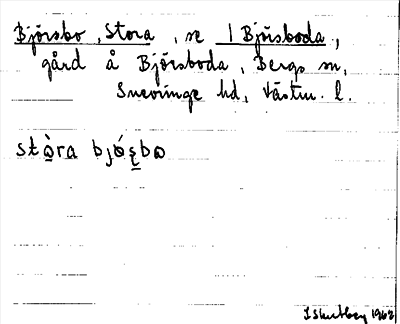 Björsbo, Stora, se 1 Björsboda,
gård å Björsboda, Bergs sn,
Snevringe hd, Västm. l.
stɷ̀ra bjǿʂbɷ
1962